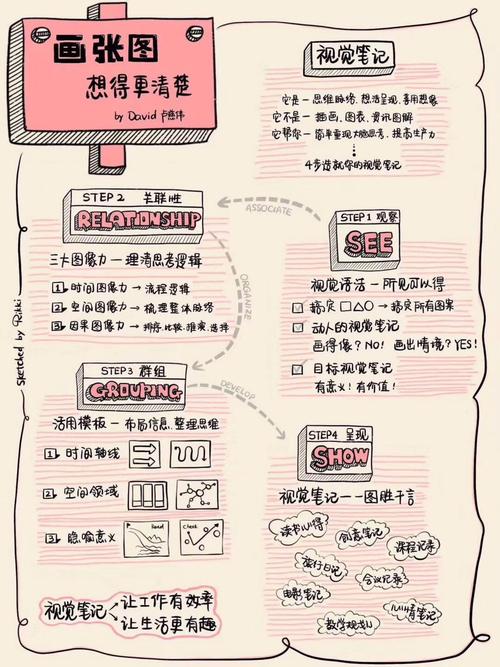 画张图
想得更清楚
by David 卢慈伟
视觉笔记
它是—思维脉络、想法呈现、善用想象
它不是—插画、图表、资讯图解
它帮你—简单重现大脑思考、提高生产力
4步造就你的视觉笔记
STEP 1 观察
SEE
视觉语法—所见可以得
搞定□△○→搞定所有图案
动人的视觉笔记
画得像?NO! 画出情境?YES!
目标视觉笔记
有意义!有价值!
ASSOCIATE
STEP 2 关联性
RELATIONSHIP
三大图像力—理清思考逻辑
1.时间图像力→流程逻辑
2.空间图像力→梳理整体脉络
3.因果图像力→排序、比较、推演、选择
ORGANIZE
STEP 3 群组
GROUPING
活用模板—布局信息、整理思维
1.时间轴线
2.空间领域
3.隐喻意义
Road
Check
DEVELOP
STEP4 呈现
SHOW
视觉笔记——图胜千言
读书心得
创意笔记
课程记录
旅行日记
会议记录
电影笔记
心情笔记
教学规划
视觉笔记
让工作有效率
让生活更有趣